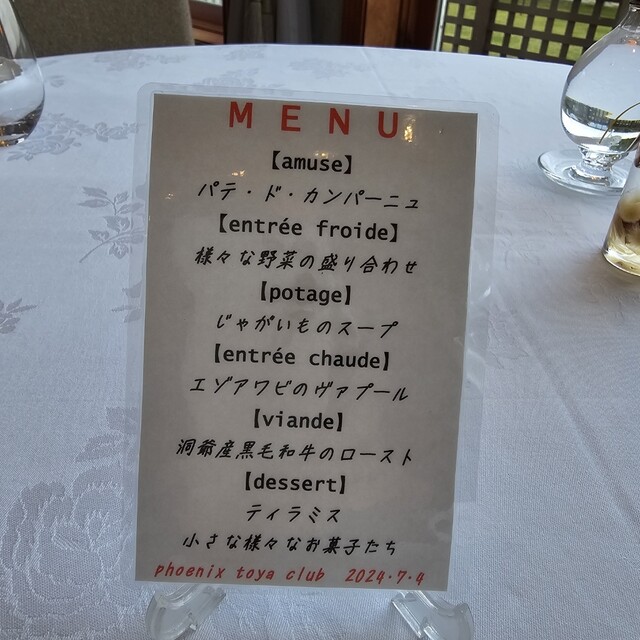 MENU
【amuse】
パテ・ド・カンパーニュ
【entrée froide】
様々な野菜の盛り合わせ
【potage】
じゃがいものスープ
【entrée chaude】
エゾアワビのヴァプール
【viande】
洞爺産黒毛和牛のロースト
【dessert】
ティラミス
小さな様々なお菓子たち
phoenix toya club 2024・7・4